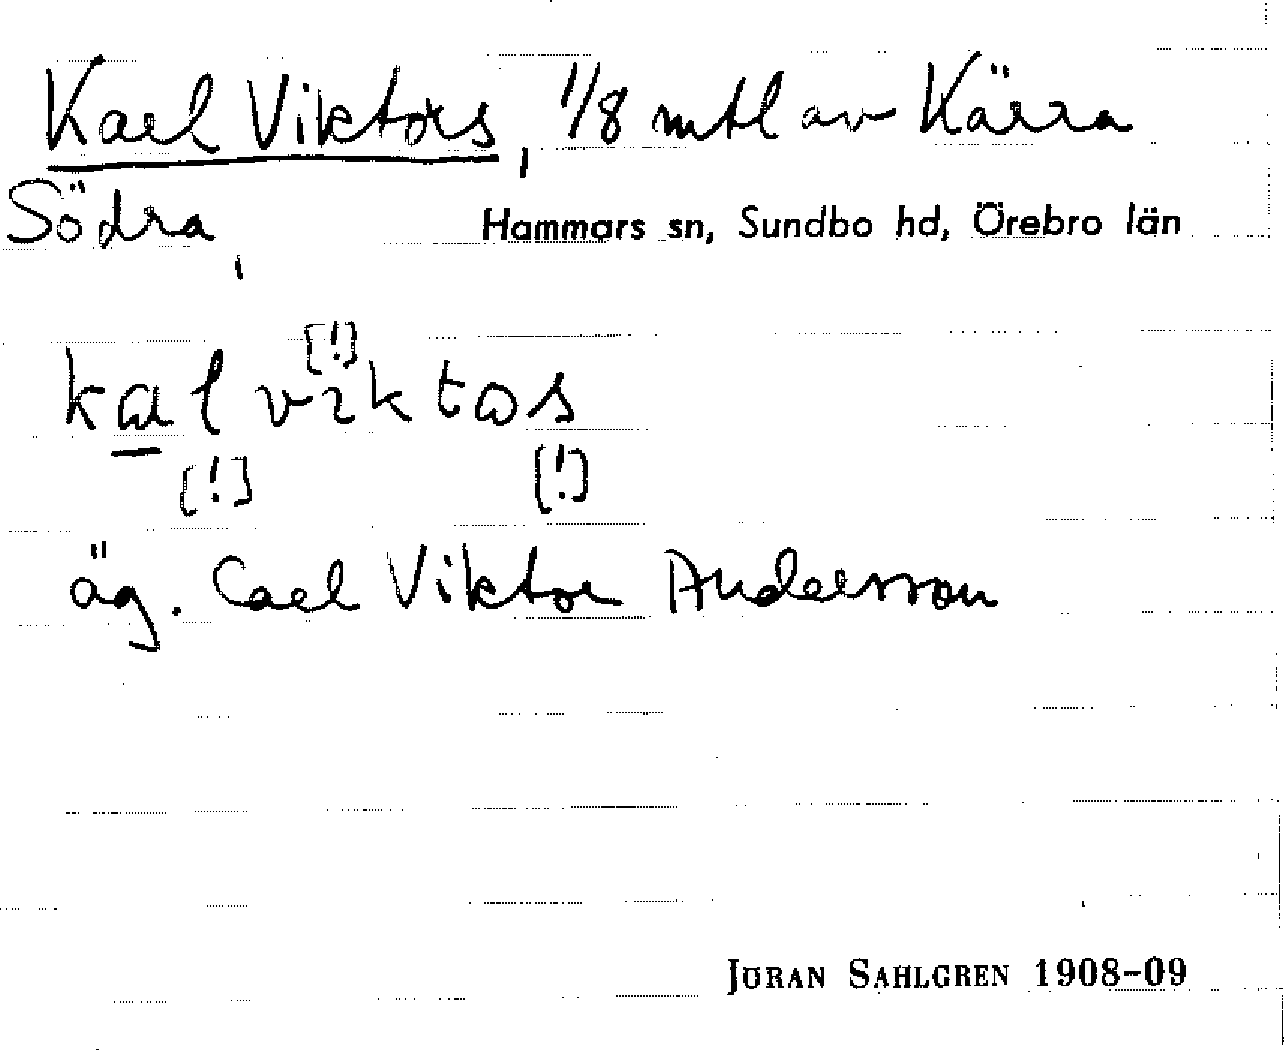 Karl Viktors, 1/8 mtl av Kärra
Södra,
Hammars sn, Sundbo hd, Örebro län
[!]
kal viktɷs
[!] [!]
äg. Carl Viktor Andersson
JÖRAN SAHLGREN 1908-09